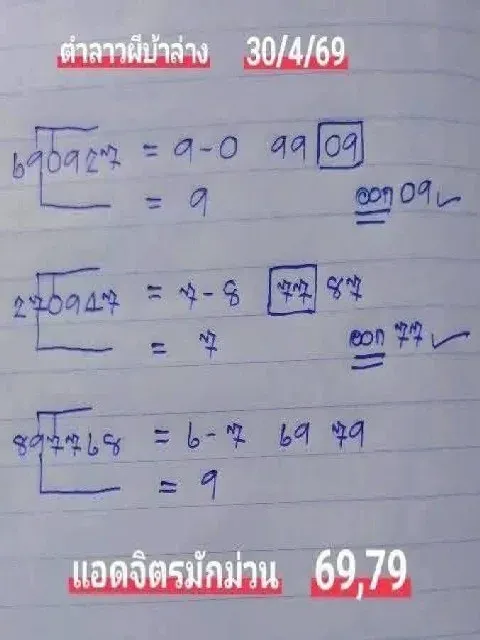 ตำลาวผีบ้าล่าง 30/4/69
690927 = 9-0 99 09
= 9 ออก 09 ✓
270947 = 7-8 77 87
= 7 ออก 77 ✓
897768 = 6-7 69 79
= 9
แอดจิตรมักม่วน 69,79